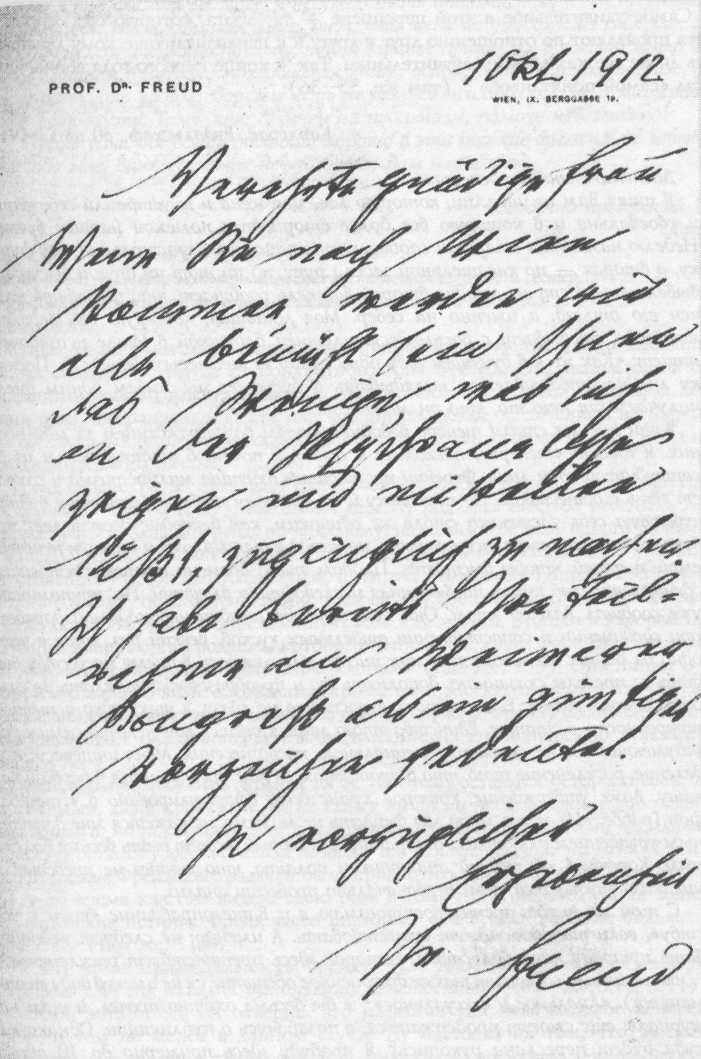 1 Okt. 1912
PROF. DR. FREUD
WIEN, IX. BERGGASSE 19.
Verehrte gnädige Frau
Wenn Sie nach Wien
kommen, werden wir
alle bemüht sein, Ihnen
das Wenige, was sich
an der Psychoanalyse
zeigen und mitteilen
läßt, zugänglich zu machen.
Ich habe bereits Ihre Teil-
nahme am Weimarer
Kongreß als ein günstiges
Vorzeichen gedeutet.
In vorzüglicher
Ergebenheit
Ihr Freud